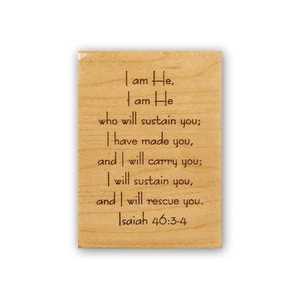 I am He,
I am He
who will sustain you;
I have made you,
and I will carry you;
I will sustain you,
and I will rescue you.
Isaiah 46:3-4